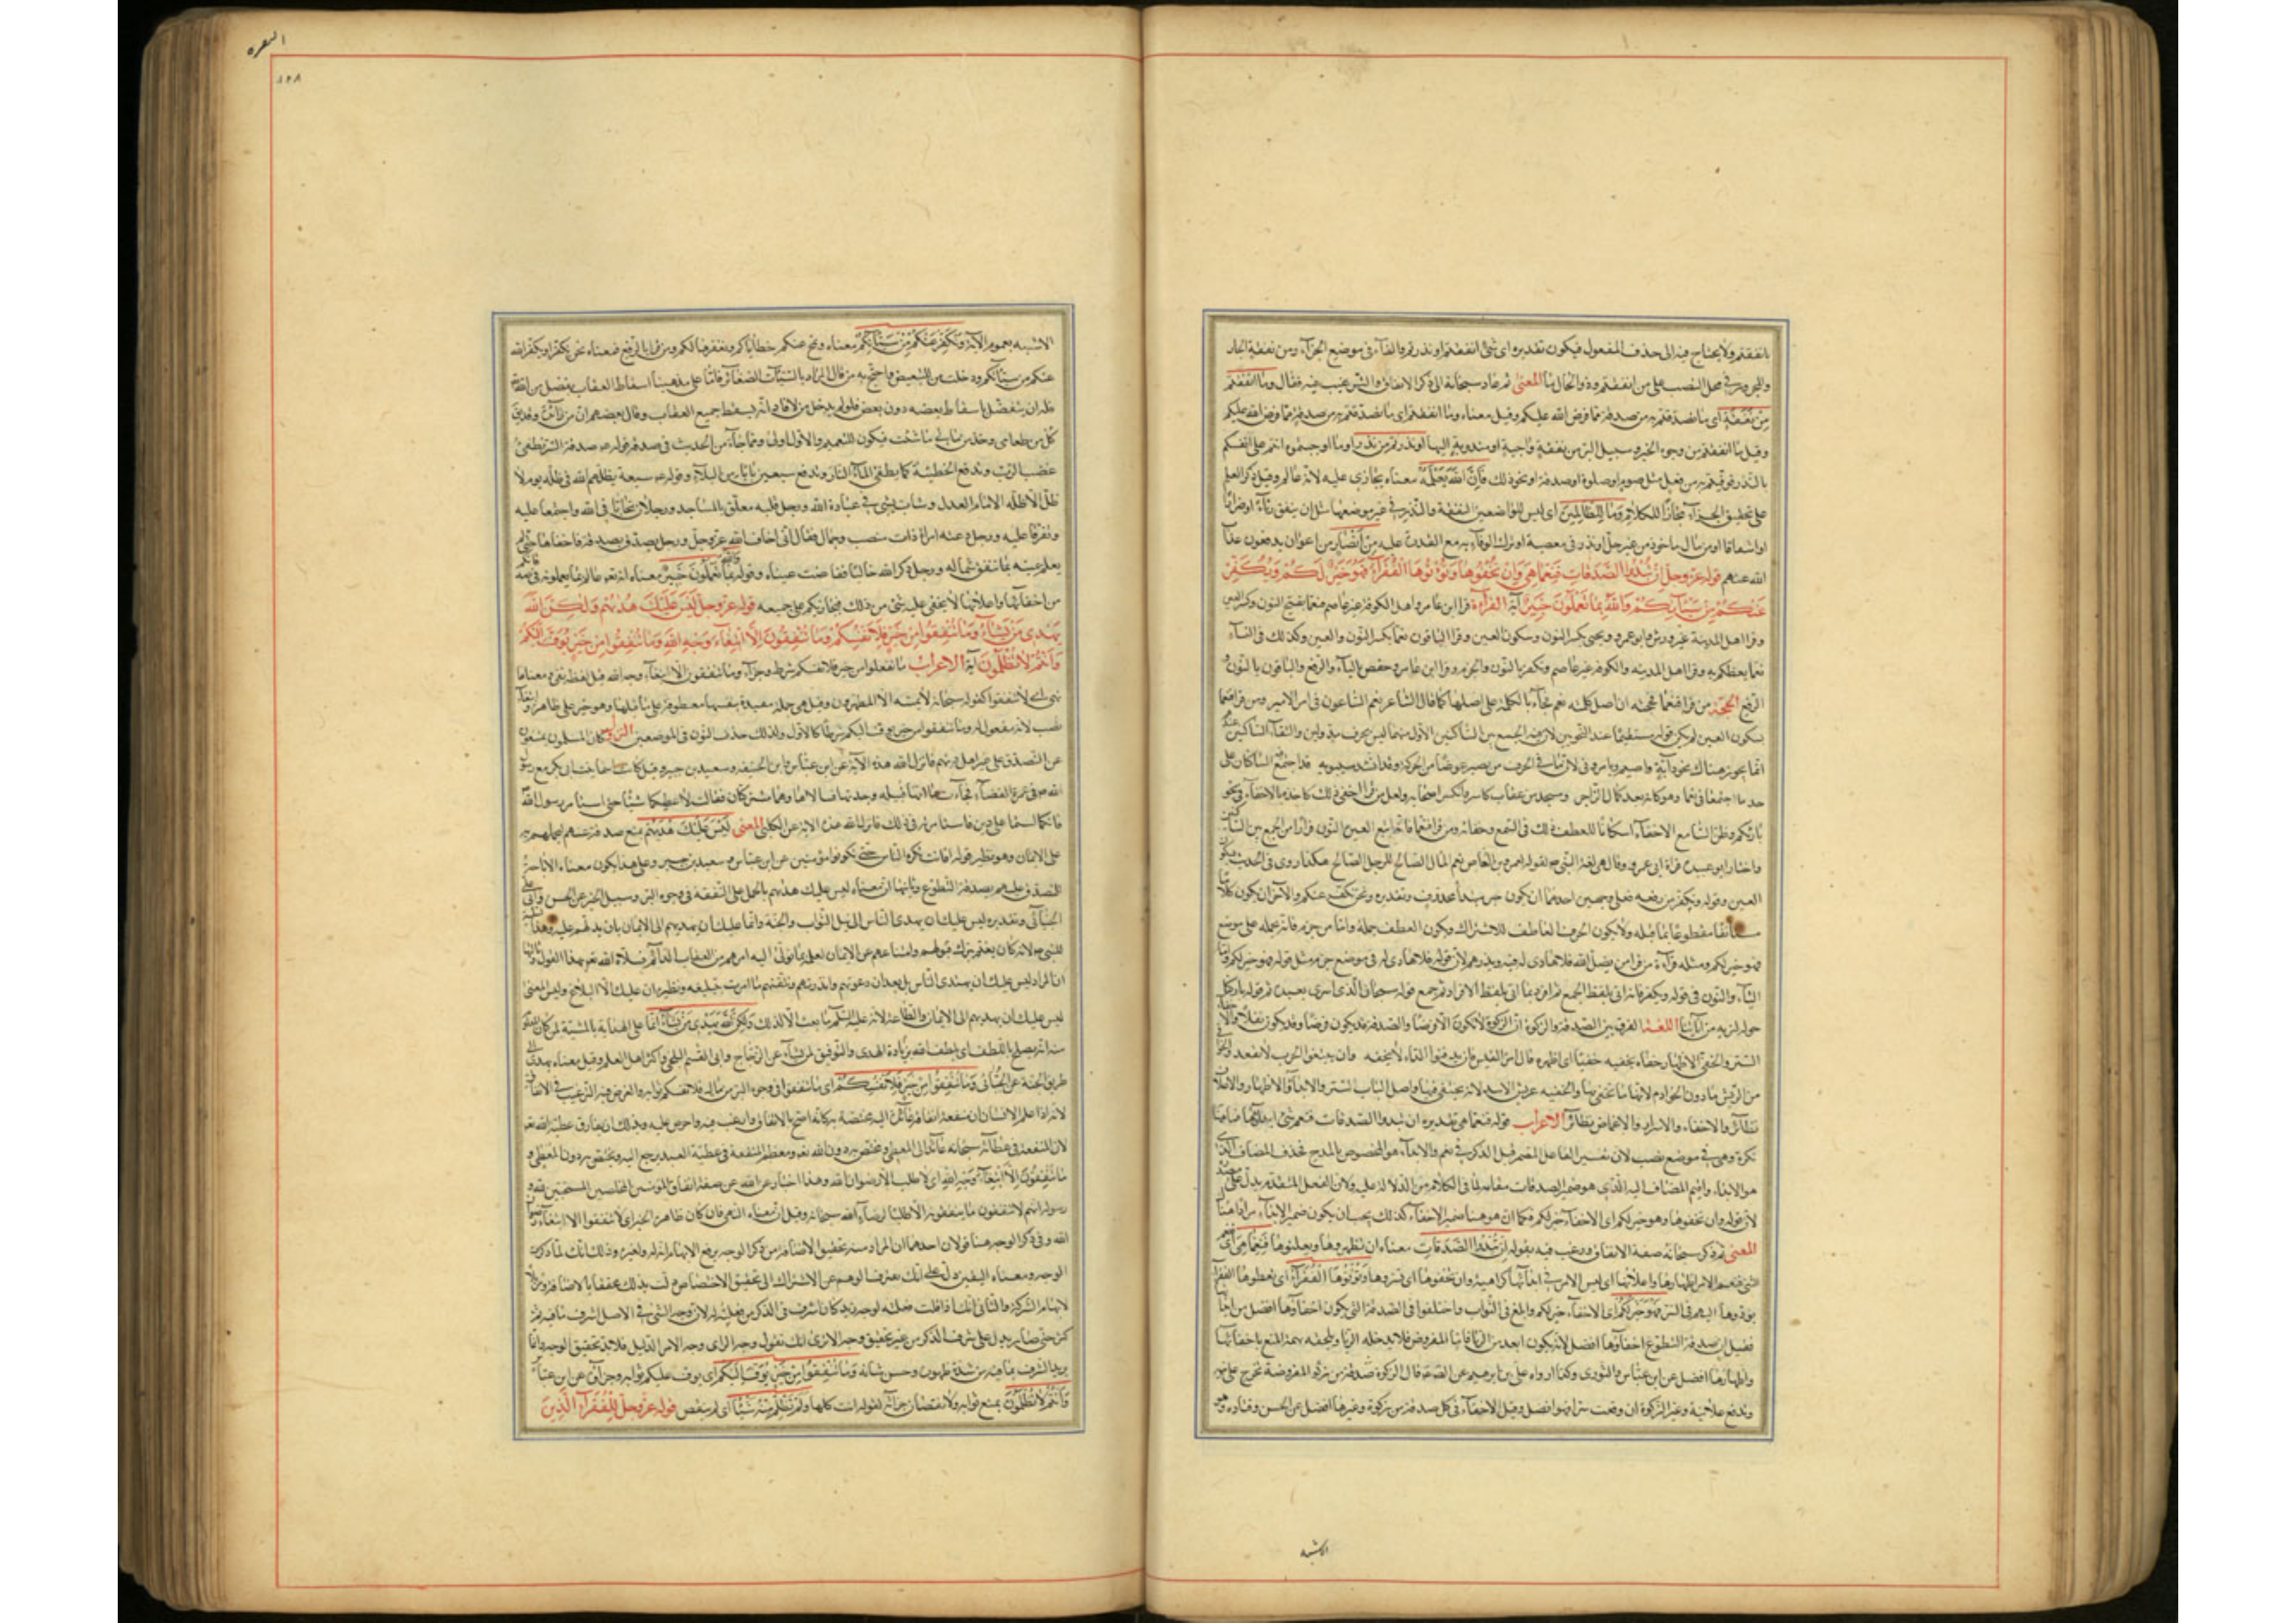 ما انفقتم ولا يحتاج فيه الى حذف المفعول فيكون تقديره اى شئ انفقتم او نذرتم والفاء فى موضع الجزاء ومن نفقة الجار
والمجرور فى محل النصب على من انفقتم وذو الحال ما المعنى ثم عاد سبحانه الى ذكر الانفاق والترغيب فيه فقال وما انفقتم
من نفقة اى ما تصدقتم به من صدقة مما فرض الله عليكم وقيل معناه وما انفقتم اى ما تصدقتم به من صدقة مما فرض الله عليكم
وقيل ما انفقتم من وجوه الخير وسبيل البر من نفقة واجبة او مندوبة اليها او نذرتم من نذر او ما اوجبتموه انتم على انفسكم
بالنذر فوفيتم به من فعل مثل صوم او صلوة او صدقة او نحو ذلك فان الله يعلمه معناه يجازى عليه لانه عالم وقيل ذكر العلم
على تحقيق الجزاء مجازا للكلام وما للظالمين اى ليس للواضعين النفقة والنذر فى غير موضعها مثل ان ينفق رئاء او ضرارا
او اشعاقا او من مال ماخوذ من غير حل او نذر فى معصية او ترك الوفاء به مع القدرة عليه من انصار من اعوان يدفعون عذاب
الله عنهم قوله عز وجل ان تبدوا الصدقات فنعما هى وان تخفوها وتؤتوها الفقرآء فهو خير لكم ويكفر
عنكم من سيئاتكم والله بما تعملون خبير آية القراءة قرا ابن عامر واهل الكوفة غير عاصم فنعما بفتح النون وكسر العين
وقرا اهل المدينة غير ورش وابو عمرو ويحيى بكسر النون وسكون العين وقرا الباقون نعما بكسر النون والعين وكذلك فى النساء
نعما يعظكم به وقرا اهل المدينه والكوفه غير عاصم ونكفر بالنون والجزم وقرا ابن عامر وحفص بالياء والرفع والباقون بالنون و
الرفع الحجة من قرا فنعما فحجته ان اصل كلمة نعم فجاء بالكلمة على اصلها كما قال الشاعر نعم الساعون فى امر الامير ومن قرا فنعما
بسكون العين لم يكن قوله مستقيما عند النحويين لان فيه الجمع بين الساكنين الاول منهما ليس بحرف مد ولين والتقاء الساكنين عندهم
انما يجوز هناك نحو دابة واصيم وتامرونى لان ما فى الحرف من يصير عوضا من الحركة وقد انشد سيبويه قد اجتمع الساكنان على
حد ما اجتمعا فى نعما وهو كانه بعد كلال الزاجر ومسحه من عقاب كاسر وانكره اصحابه ولعل من قرا اخفى ذلك كاخذه بالاخفاء فى نحو
بارئكم فظن السامع الاخفاء اسكانا للطف ذلك فى السمع وخفائه ومن قرا فنعما فانما اتبع العين النون فرارا من الجمع بين الساكنين
واختار ابو عبيدة قراءة ابى عمرو وقال هى لغة النبى ص لقوله لعمرو بن العاص نعم المال الصالح للرجل الصالح هكذا روى فى الحديث بسكون
العين وقوله ويكفر من رفعه فعلى وجهين احدهما ان يكون خبر مبتدأ محذوف وتقديره ونحن نكفر عنكم والآخر ان يكون كلاما
مستأنفا مقطوعا مما قبله ولا يكون الحرف العاطف للاشتراك ويكون العطف جملة واما من جزم فانه حمله على موضع
فهو خير لكم ومثله قراءة من قرا من يضلل الله فلا هادى له ويذرهم لان قوله فلا هادى له فى موضع جزم مثل قوله فهو خير لكم واما
الياء والنون فى قوله ونكفر فانه اتى بلفظ الجمع ثم افرد كما اتى بلفظ الافراد ثم جمع قوله سبحان الذى اسرى بعبده ثم قوله باركنا
حوله لنريه من آياتنا اللغة الفرق بين الصدقة والزكوة ان الزكوة لا تكون الا فرضا والصدقة قد يكون فرضا وقد يكون نفلا والاخفاء
الستر والخفى الاظهار خفاه يخفيه خفيا اى اظهره قال امرء القيس فان تدفنوا الداء لا نخفه وان تبعثوا الحرب لا نقعد والخوافى
من الريش ما دون القوادم لانها تخفى بها والخفيه عرين الاسد لانه يختفى فيها واصل الباب الستر والابداء والاظهار والاعلان
نظائر والاخفاء والاسرار والاغماض نظائر الاعراب قوله فنعما هى تقديره ان تبدوا الصدقات فنعم شئ ابداؤها فما هنا
نكرة وهى فى موضع نصب لان تفسير الفاعل المضمر قبل الذكر فى نعم والابداء هو المخصوص بالمدح فحذف المضاف الذى
هو الابداء واقيم المضاف اليه الذى هو ضمير الصدقات مقامه لما فى الكلام من الدلالة عليه ولان الفعل المتقدم يدل على مصدره
لان قوله وان تخفوها فهو خير لكم اى الاخفاء خير لكم فكما ان هو هنا ضمير الاخفاء كذلك يجب ان يكون ضمير الابداء مرادا هنا
المعنى ثم ذكر سبحانه صفة الانفاق ورغب فيه بقوله ان تبدوا الصدقات معناه ان تظهروها وتعلنوها فنعما هى اى
الشئ فنعم الامر اظهارها واعلانها اى ليس الامر فى ابدائها كراهية وان تخفوها اى تسروها وتؤتوها الفقراء اى تعطوها الفقراء
تؤدوها اليهم فى السر فهو خير لكم اى الاخفاء خير لكم وابلغ فى الثواب واختلفوا فى الصدقة التى يكون اخفاؤها افضل من ابدائها
فقيل ان صدقة التطوع اخفاؤها افضل لانه يكون ابعد من الريا فاما المفروض فلا يدخله الريا ويلحقه تهمة المنع باخفائها
واظهارها افضل عن ابن عباس والثورى وكذا رواه على بن ابرهيم عن الصادق قال الزكوة المفروضة تخرج علانية
وتدفع علانية وغير الزكوة ان دفعت سرا فهو افضل وقيل الاخفاء فى كل صدقة من زكوة وغيرها افضل عن الحسن وقتادة وهو
الاشبه
البقره
١٢٨
الاشبه بعموم الآية ونكفر عنكم من سيئاتكم معناه ونمح عنكم خطاياكم ونغفرها لكم ومن قرا بالرفع فمعناه نحن نكفر او يكفر الله
عنكم من سيئاتكم ودخلت من للتبعيض واحتج به من قال المراد بالسيئات الصغائر فاما على مذهبنا اسقاط العقاب تفضل من الله
فله ان يتفضل باسقاط بعضه دون بعض فلو لم يدخل من لافاد انه يسقط جميع العقاب وقال بعضهم ان من زائدة وقد يق
كل من طعامى وخذ من مالى ما شئت فيكون للتعميم والاول اولى ومما جاء من الحديث فى صدقة السر قوله ص صدقة السر تطفئ
غضب الرب وتدفع الخطيئة كما يطفئ الماء النار وتدفع سبعين بابا من البلاء وقوله ص سبعة يظلهم الله فى ظله يوم لا
ظل الا ظله الامام العدل وشاب نشا فى عبادة الله ورجل قلبه معلق بالمساجد ورجلان تحابا فى الله واجتمعا عليه
وتفرقا عليه ورجل دعته امراة ذات منصب وجمال فقال انى اخاف الله عز وجل ورجل يصدق بصدقة فاخفاها حتى لم
يعلم يمينه بما تنفق شماله ورجل ذكر الله خاليا ففاضت عيناه وقوله والله بما تعملون خبير معناه انه تعالى عالم بما تعملونه فى صدقاتكم
من اخفائها واعلانها لا يخفى عليه شئ من ذلك فيجازيكم على جميعه قوله عز وجل ليس عليك هديهم ولكن الله
يهدى من يشاء وما تنفقوا من خير فلانفسكم وما تنفقون الا ابتغاء وجه الله وما تنفقوا من خير يوف اليكم
وانتم لا تظلمون آية الاعراب ما تفعلوا من خير فلانفسكم شرط وجزاء وما تنفقون الا ابتغاء وجه الله قيل لفظه نفى ومعناه
نهى اى لا تنفقوا كقوله سبحانه لا يمسه الا المطهرون وقيل هى جملة مفيدة بنفسها معطوفة على ما قبلها وهو خبر على ظاهره وابتغاء
نصب لانه مفعول له وما تنفقوا من خير يوف اليكم شرط كالاول ولذلك حذف النون فى الموضعين النزول كان المسلمون يمتنعون
عن التصدق على غير اهل دينهم فانزل الله هذه الآية عن ابن عباس وابن الحنفيه وسعيد بن جبير وقيل كانت اسماء بنت ابى بكر مع رسول
الله ص فى عمرة القضاء فجاءت امها قتيلة وجدتها تسالانها وهما مشركتان فقالت لا اعطيكما شيئا حتى استامر رسول الله
فانكما لستما على دينى فاستامرته فى ذلك فانزل الله هذه الاية عن الكلبى المعنى ليس عليك هديهم بمنع صدقة عنهم لحملهم به
على الايمان وهو نظير قوله افانت تكره الناس حتى يكونوا مؤمنين عن ابن عباس وسعيد بن جبير وعلى هذا يكون معناه الاباحة
للتصدق عليهم بصدقة التطوع وثانيها ان معناه ليس عليك هديهم بالحمل على النفقة فى وجوه البر وسبيل الخير عن الحسن وابى على
الجبائى وتقديره ليس عليك ان تهدى الناس الى نيل الثواب والجنة وانما عليك ان تهديهم الى الايمان بان تدلهم عليه وهذا تسلية
للنبى ص لانه كان يغتم بترك قبولهم وامتناعهم عن الايمان لعلمه بما يؤل اليه امرهم من العقاب الدائم فسلاه الله تعالى بهذا القول وثالثها
ان المراد ليس عليك ان يهتدى الناس بل بعد ان دعوتهم وانذرتهم وبلغتهم ما امرت بتبليغه ونظيره ان عليك الا البلاغ وليس المعنى
ليس عليك ان تهديهم الى الايمان والطاعة لانه عليه السلم ما بعث الا لذلك ولكن الله يهدى من يشاء انما على الهداية بالمشية لمن كان المعلوم
منه انه يصلح باللطف اى يلطف الله بزيادة الهدى والتوفيق لمن يشاء عن الزجاج وابى القسم البلخى واكثر اهل العلم وقيل معناه يهدى الى
طريق الجنة عن الجبائى وما تنفقوا من خير فلانفسكم اى ما تنفقوا فى وجوه البر من مال فلانفسكم ثوابه والغرض فيه الترغيب فى الانفاق
لانه اذا علم الانسان ان منفعة انفاقه عائدة اليه مختصة به كان اسمح بالانفاق وارغب فيه واحرص عليه وبذلك يفارق عطية الله تعالى
لان المنفعة فى عطائه سبحانه عائدة الى المعطى ومختص به دون الله تعالى ومعظم المنفعة فى عطية العبد يرجع اليه ويختص به دون المعطى و
ما تنفقون الا ابتغاء وجه الله اى الا طلب رضوان الله وهذا اخبار من الله عن صفة انفاق المؤمنين المخلصين المستجيبين لله و
رسوله انهم لا ينفقون ما ينفقونه الا طلبا لرضاء الله سبحانه وقيل ان معناه النهى وان كان ظاهره الخبر اى لا تنفقوا الا ابتغاء مرضات
الله وفى ذكر الوجه هنا قولان احدهما ان المراد منه تحقيق الاضافة لان ذكر الوجه يرفع الابهام انه له ولغيره وذلك انك لما ذكرت
الوجه ومعناه النفس دل على انك تصرف الوهم عن الاشتراك الى تحقيق الاختصاص وكنت بذلك محققا للاضافة ومزيلا
لابهام الشركة والثانى انك اذا قلت فعلته لوجه زيد كان اشرف فى الذكر من فعلته له لان وجه الشئ فى الاصل اشرف ما فيه ثم
كثر حتى صار يدل على شرف الذكر من غير تحقيق وجه الا ترى انك تقول وجه الراى ووجه الامر ووجه الدليل فلا تريد تحقيق الوجه وانما
تريد اشرف ما فيه من شدة ظهوره وحسن شانه وما تنفقوا من خير يوف اليكم اى يوف عليكم ثوابه وجزاؤه عن ابن عباس
وانتم لا تظلمون بمنع ثوابه ولا نقصان جزائه لقوله اتت اكلها ولم تظلم منه شيئا اى لم ينقص قوله عز وجل للفقرآء الذين